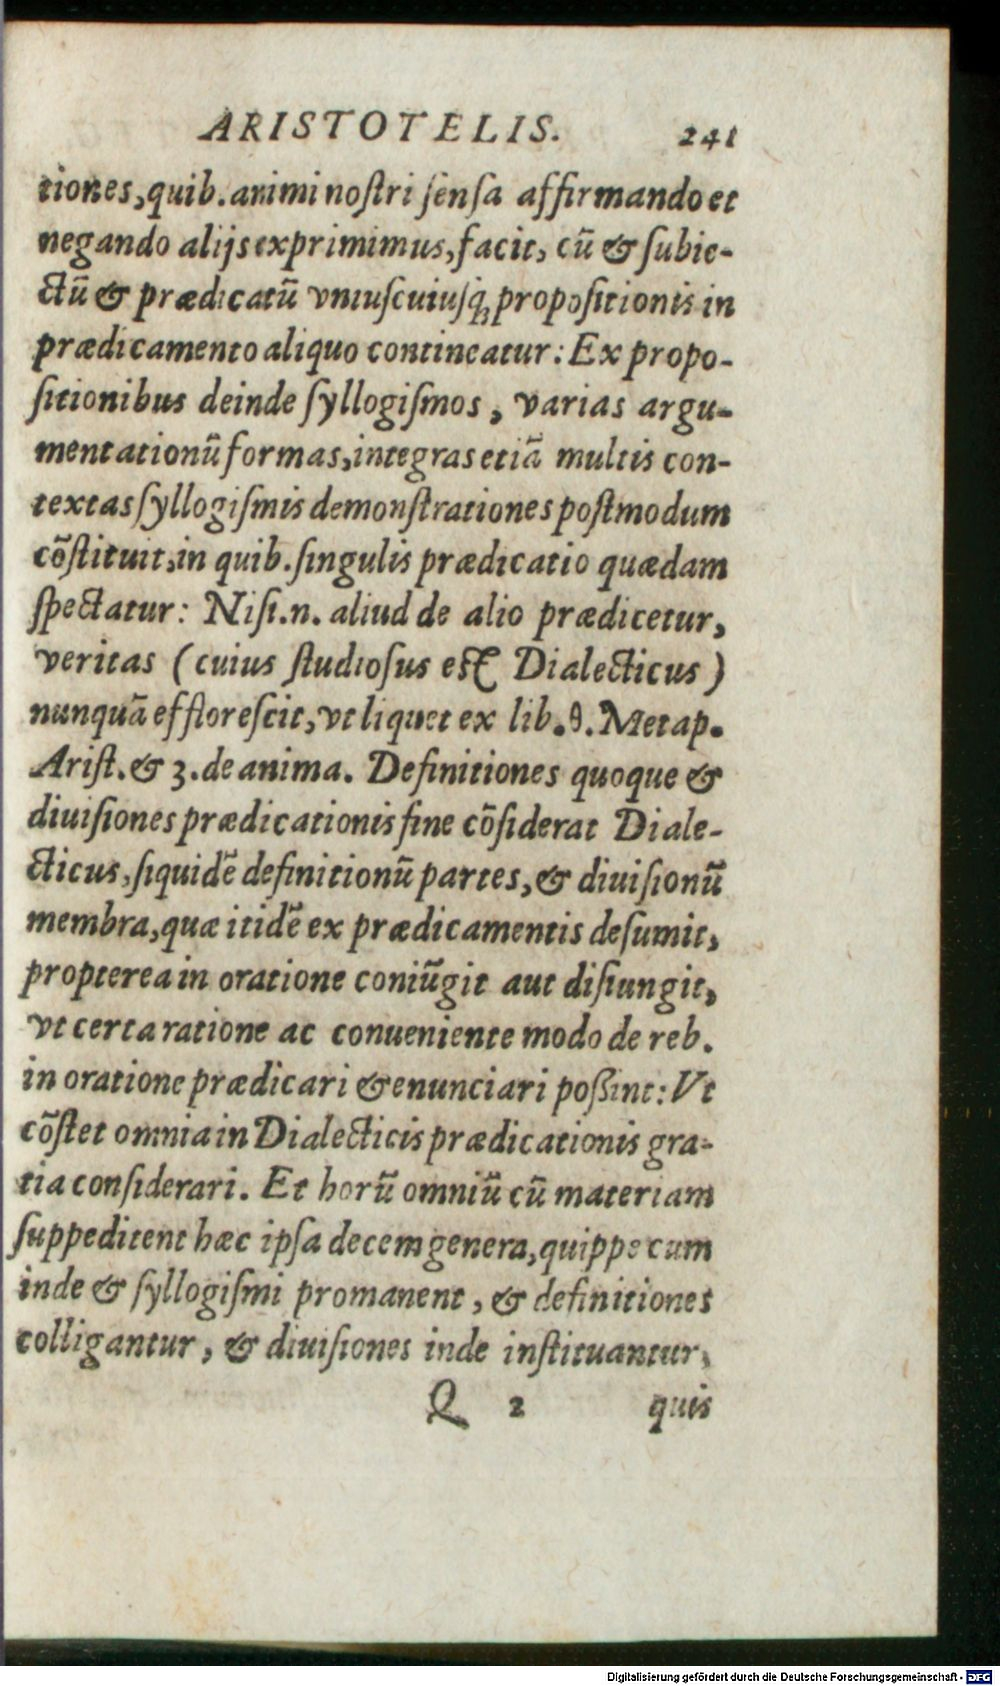 ARISTOTELIS. 241
tiones, quib. animi noſtri ſenſa affirmando et
negando alijs exprimimus, facit, cũ & ſubie-
ctũ & prædicatũ vniuſcuiuſq; propoſitionis in
prædicamento aliquo contineatur: Ex propo-
ſitionibus deinde ſyllogiſmos, varias argu-
mentationũ formas, integras etiã multis con-
textas ſyllogiſmis demonſtrationes poſtmodum
cõſtituit, in quib. ſingulis prædicatio quædam
ſpectatur: Niſi .n. aliud de alio prædicetur,
veritas (cuius ſtudioſus eſt Dialecticus)
nunquã effloreſcit, vt liquet ex lib. 9. Metap.
Ariſt. & 3. de anima. Definitiones quoque &
diuiſiones prædicationis fine cõſiderat Diale-
cticus, ſiquidẽ definitionũ partes, & diuiſionũ
membra, quæ itidẽ ex prædicamentis deſumit,
propterea in oratione coniũgit aut diſiungit,
vt certa ratione ac conueniente modo de reb.
in oratione prædicari & enunciari poßint: Vt
cõſtet omnia in Dialecticis prædicationis gra-
tia conſiderari. Et horũ omniũ cũ materiam
ſuppeditent hæc ipſa decem genera, quippe cum
inde & ſyllogiſmi promanent, & definitiones
colligantur, & diuiſiones inde inſtituantur,
Q 2 quis
Digitalisierung gefördert durch die Deutsche Forschungsgemeinschaft - DFG